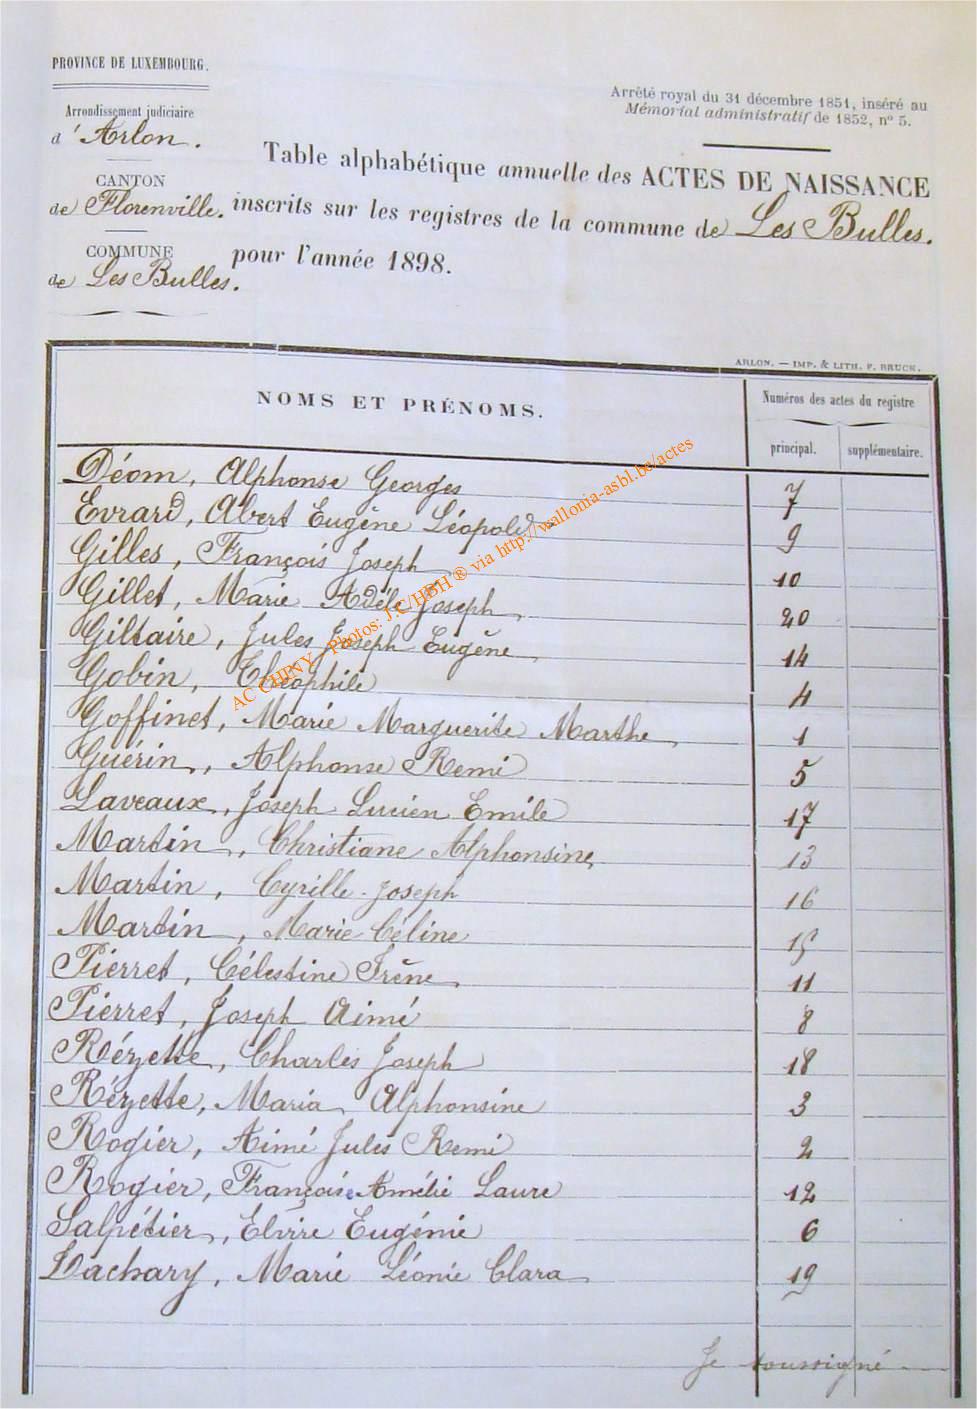 PROVINCE DE LUXEMBOURG.
Arrondissement judiciaire
d'Arlon.
CANTON
de Florenville.
COMMUNE
de Les Bulles.
Arrêté royal du 31 décembre 1851, inséré au
Mémorial administratif de 1852, n° 5.
Table alphabétique annuelle des ACTES DE NAISSANCE
inscrits sur les registres de la commune de Les Bulles.
pour l'année 1898.
ARLON. — IMP. & LITH. P. BRUCK.
NOMS ET PRÉNOMS.
Numéros des actes du registre
principal. supplémentaire.
Déom, Alphonse Georges 7
Evrard, Abert Eugène Léopold 9
Gilles, François Joseph 10
Gillet, Marie Adèle Joseph 20
Giltaire, Jules Joseph Eugène 14
Gobin, Théophile 4
Goffinet, Marie Marguerite Marthe 1
Guérin, Alphonse Remi 5
Laveaux, Joseph Lucien Emile 17
Martin, Christiane Alphonsine 13
Martin, Cyrille Joseph 16
Martin, Marie Céline 15
Pierret, Célestine Irène 11
Pierret, Joseph Aimé 8
Rézette, Charles Joseph 18
Rézette, Maria Alphonsine 3
Rogier, Aimé Jules Remi 2
Rogier, Françoise Amélie Laure 12
Salpétier, Elvire Eugénie 6
Zachary, Marie Léonie Clara 19
Je soussigné
AC CHINY - Photos: J.C/HBH ® via http://wallonia-asbl.be/actes